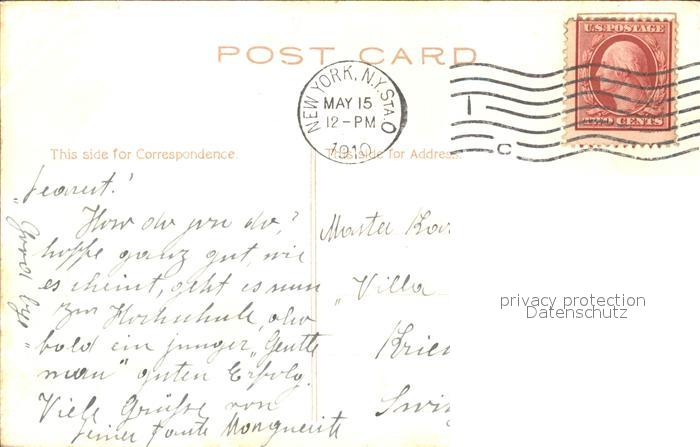 U.S. POSTAGE
TWO CENTS
POST CARD
NEW YORK, N.Y. STA. O
MAY 15
12-PM
1910
1
C
This side for Correspondence.
This side for Address.
Dearest!
How do you do,?
hoffe ganz gut, wie
es scheint, geht es nun
zur Hochschule, also
bald ein junger „Gentle
man" guten Erfolg.
Viele Grüße von
Deiner Tante Marguerite
„Good bye"
Master
„Villa
privacy protection
Datenschutz